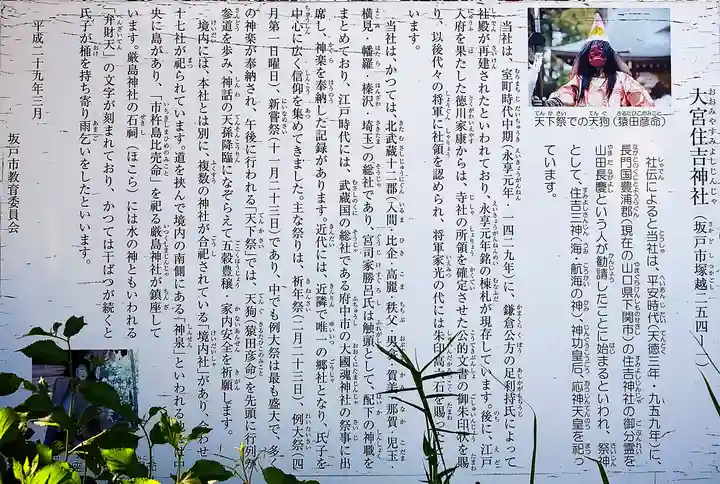 大宮住吉神社（坂戸市塚越二五四－
社伝によると当社は、平安時代（天徳三年・九五九年）に、
長門国豊浦郡（現在の山口県下関市）の住吉神社の御分霊を
山田長慶という人が勧請したことに始まるといわれ、祭神
として、住吉三神（海・航海の神）、神功皇后、応神天皇を祀っ
ています。
天下祭での天狗（猿田彦命）
当社は、室町時代中期（永享元年・一四二九年）に、鎌倉公方の足利持氏によって
社殿が再建されたといわれており、永享元年銘の棟札が現存しています。後に、江戸
入府を果たした徳川家康からは、寺社の所領を確定させた公的文書の御朱印状を賜
り、以後代々の将軍に社領を認められ、将軍家光の代には朱印 石を賜っ
います。
当社は、かつては、北武蔵十二郡（入間・比企・高麗・秩父・男衾・賀美・那賀・児玉
横見・幡羅・榛沢・埼玉）の総社であり、宮司家勝呂氏は触頭として、配下の神職を
まとめており、江戸時代には、武蔵国の総社である府中市の大國魂神社の祭事に出
席し、神楽を奉納した記録があります。近代には、近隣で唯一の郷社となり、氏子を
中心に広く信仰を集めてきました。主な祭りは、祈年祭（二月二十三日）、例大祭（四
月第一日曜日）、新嘗祭（十一月二十三日）であり、中でも例大祭は最も盛大で、多く
の神楽が奉納され、午後に行われる「天下祭」では、天狗（猿田彦命）を先頭に行列が
参道を歩み、神話の天孫降臨になぞらえて五穀豊穣・家内安全を祈願します。
境内には、本社とは別に、複数の神社が合祀されている「境内社」があり、 わせ
十七社が祀られています。道を挟んで境内の南側にある「神泉」といわれる 中
央に島があり、「市杵島比売命」を祀る厳島神社が鎮座して
います。厳島神社の石祠（ほこら）には水の神ともいわれる
「弁財天」の文字が刻まれており、かつては干ばつが続くと
氏子が桶を持ち寄り雨乞いをしたといいます。
平成二十九年三月
坂戸市教育委員会